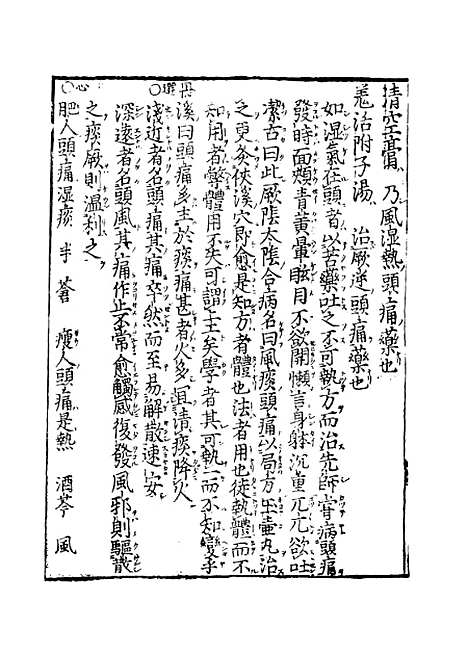 清空膏　乃風湿熱頭痛藥也
羌活附子湯　治厥逆頭痛藥也
如湿氣在頭者以苦藥吐之不可執方而治先師甞病頭痛
發時面頰青黃暈眩目不欲開懶言身躰沉重兀兀欲吐
潔古曰此厥陰太陰合病名曰風痰頭痛以局方玉壷丸治
之更灸侠溪穴即愈是知方者體也法者用也徒執體而不
知用者弊體用不失可謂上工矣學者其可執一而不知變乎
丹溪曰頭痛多主於痰痛甚者火多宜清痰降火
選〇淺近者名頭痛其痛卒然而至易解散速安
深遠者名頭風其痛作止不常愈觸感復發風邪則驅散
之痰厥則温利之
心〇肥人頭痛湿痰　半　蒼　瘦人頭痛是熱　酒芩　風